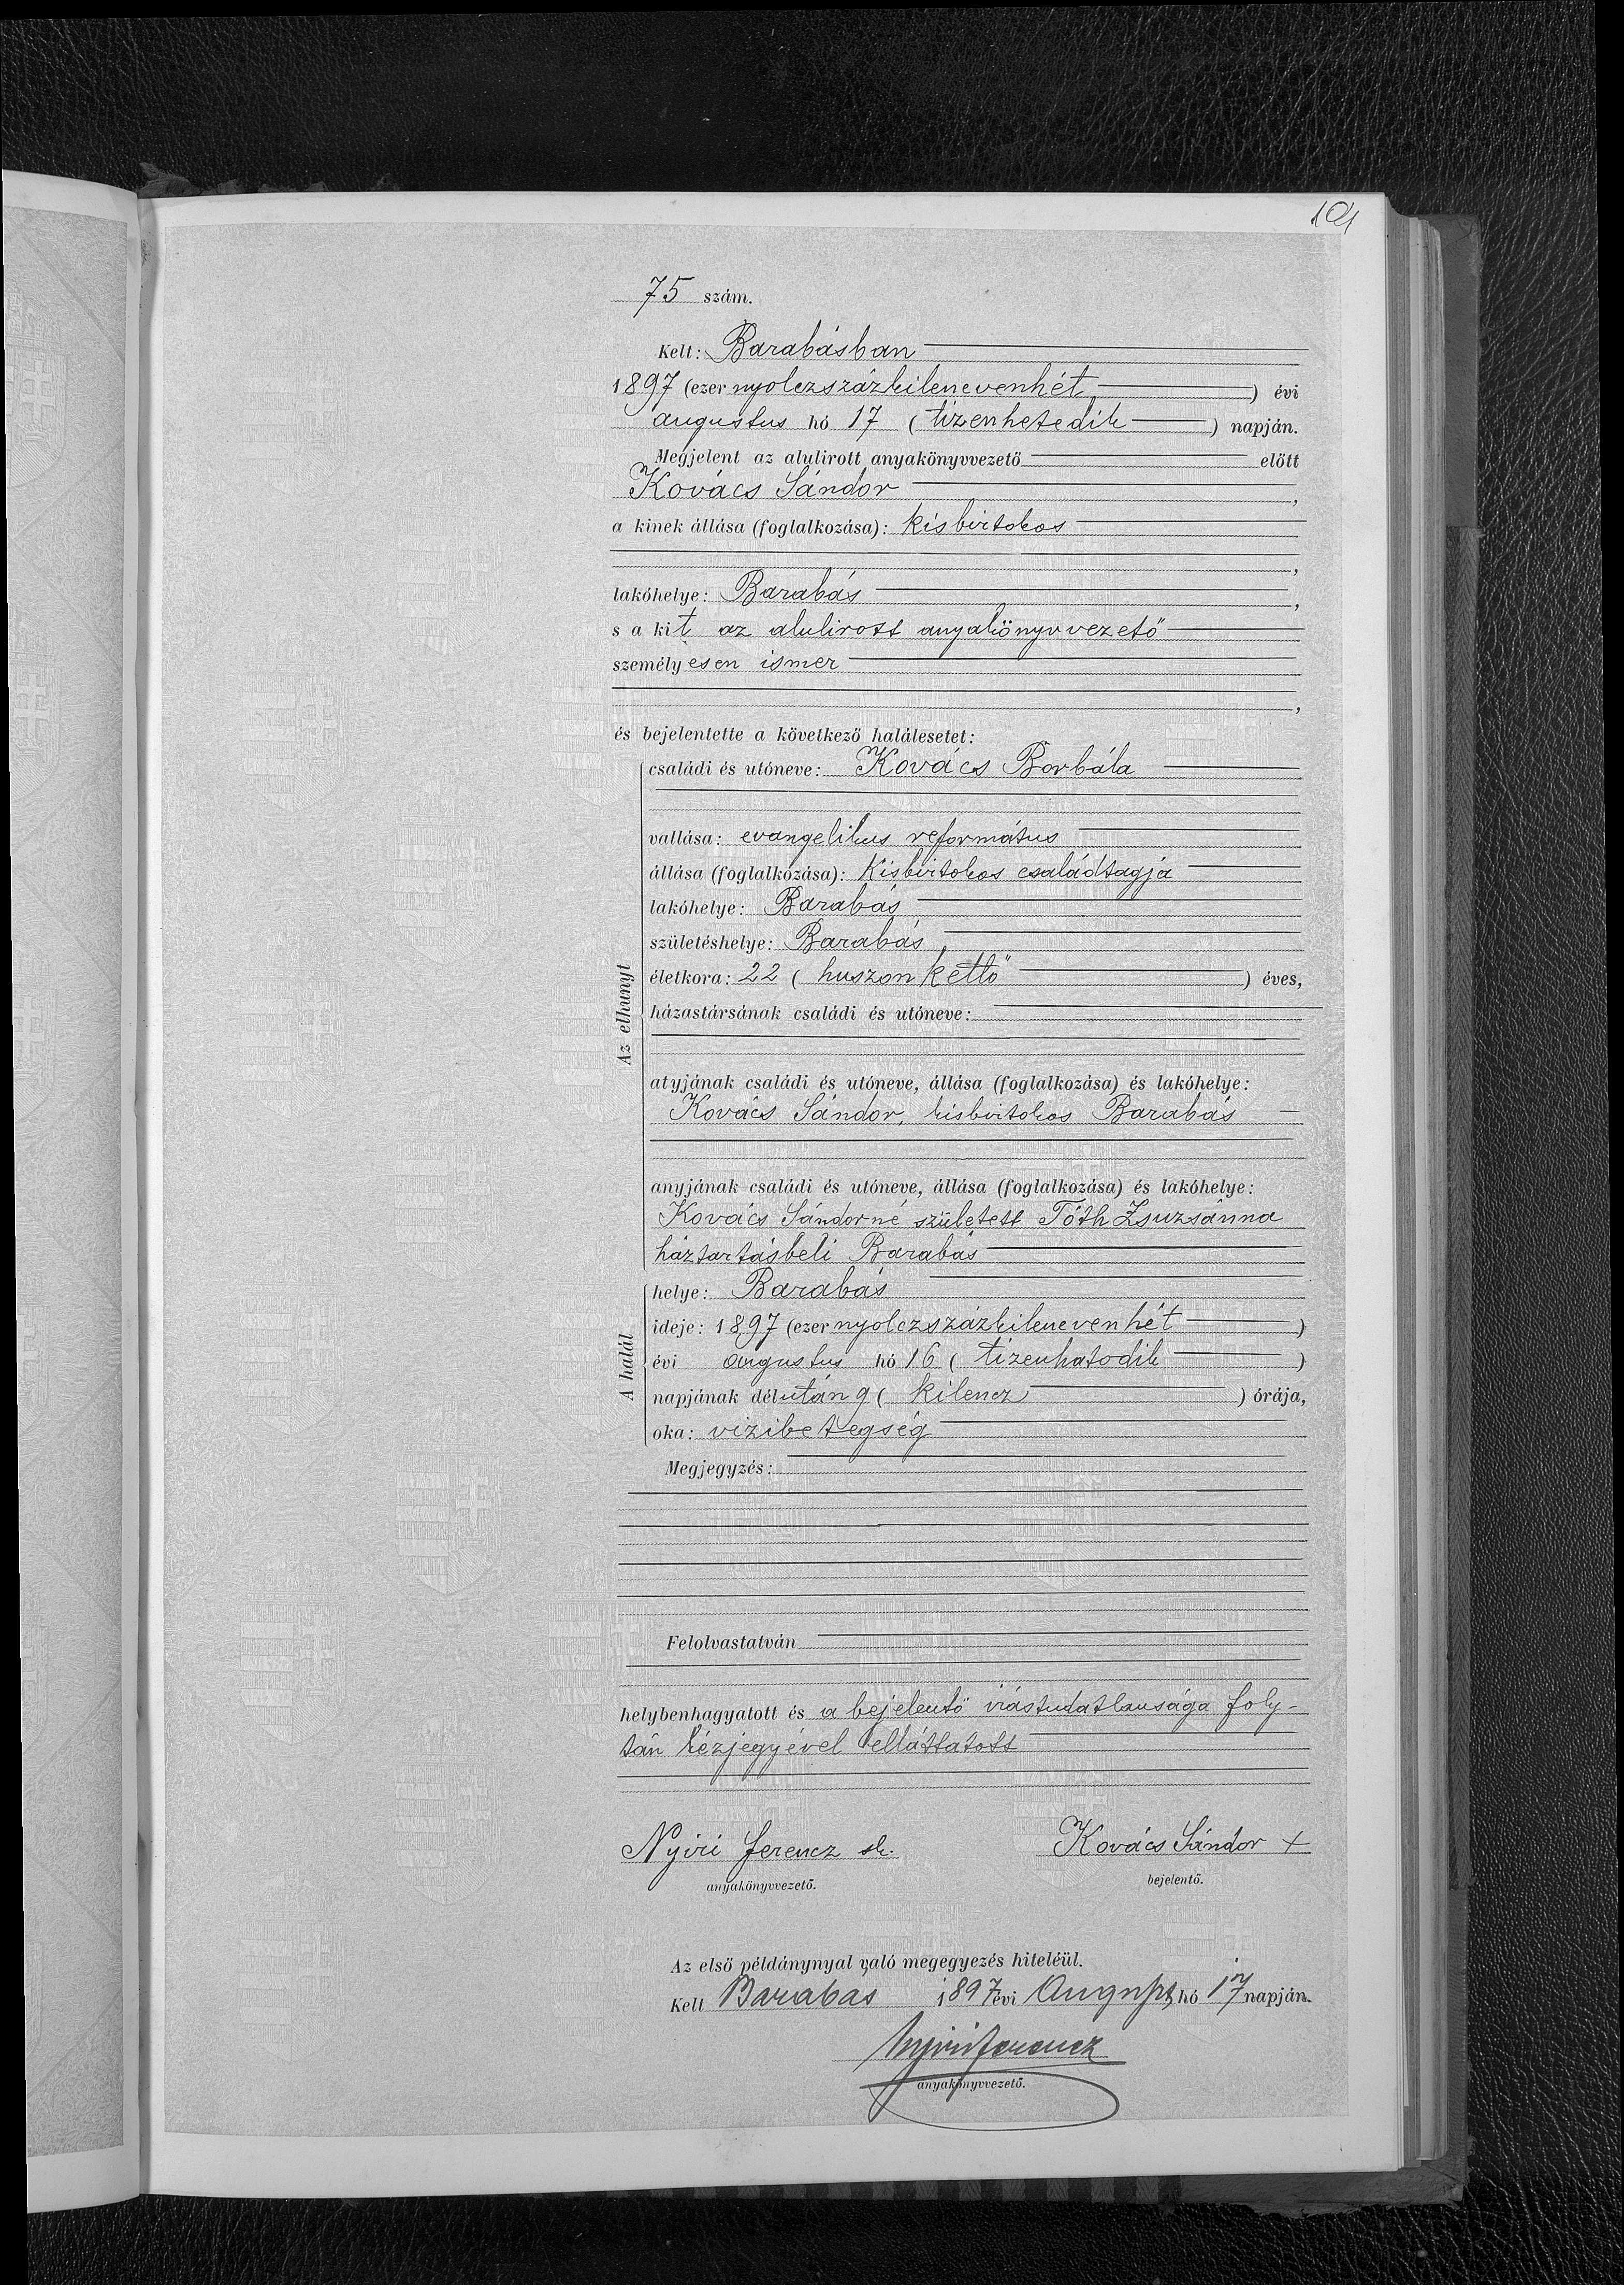 101
75 szám.
Kelt: Barabásban
1897 (ezer nyolczszázkilenevenhét) évi
augustus hó 17 (tizenhetedik) napján.
Megjelent az alulirott anyakönyvvezető előtt
Kovács Sándor,
a kinek állása (foglalkozása): kisbirtokos
,
lakóhelye: Barabás,
s a kit az alulirott anyakönyvvezető
személyesen ismer
,
és bejelentette a következő halálesetet:
Az elhunyt
családi és utóneve: Kovács Borbála
vallása: evangelikus református
állása (foglalkozása): Kisbirtokos családtagja
lakóhelye: Barabás
születéshelye: Barabás
életkora: 22 (huszonkettő) éves,
házastársának családi és utóneve:
atyjának családi és utóneve, állása (foglalkozása) és lakóhelye:
Kovács Sándor, kisbirtokos Barabás
anyjának családi és utóneve, állása (foglalkozása) és lakóhelye:
Kovács Sándorné született Tóth Zsuzsánna
háztartásbeli Barabás
A halál
helye: Barabás
ideje: 1897 (ezer nyolczszázkilenevenhét)
évi augustus hó 16 (tizenhatodik)
napjának délután 9 (kilencz) órája,
oka: vizibetegség
Megjegyzés:
Felolvastatván
helybenhagyatott és a bejelentő irástudatlansága foly-
tán kézjegyével elláttatott
Nyiri Ferencz sk. Kovács Sándor +
anyakönyvvezető. bejelentő.
Az első példánynyal való megegyezés hiteléül.
Kelt Barabas 1897 évi hó 17 napján.
Nyiri Ferencz
anyakönyvvezető.